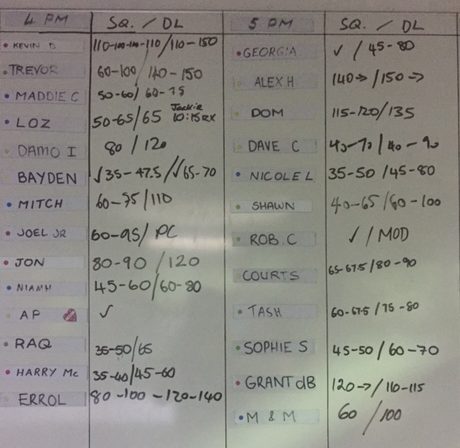 4 PM SQ. / DL 5 PM SQ. / DL
KEVIN D 110-100-110-110/110-150 GEORGIA ✓ / 45-80
TREVOR 60-100/140-150 ALEX H 140→/150→
MADDIE C 50-60/60-75 DOM 115-120/135
LOZ 50-65/65 Jackie 10:15 DOM
DAMO I 80/120 DAVE C 40-70/40-90
BAYDEN ✓35-47.5/✓65-70 NICOLE L 35-50/45-80
MITCH 60-95/110 SHAWN 40-65/60-100
JOEL JR 60-95/PC ROB.C ✓/MOD
JON 80-90/120 COURTS 65-67.5/80-90
NIAMH 45-60/60-80
AP ✓ TASH 60-67.5/75-80
RAQ 35-50/65 SOPHIE S 45-50/60-70
HARRY Mc 35-40/45-60 GRANT dB 120→/110-115
ERROL 80-100-120-140 M & M 60/100